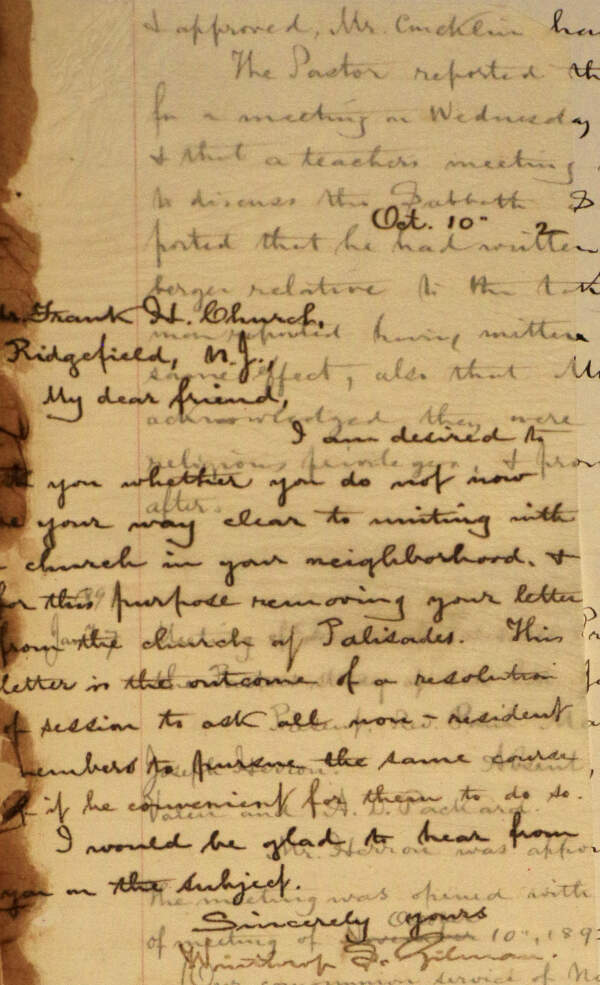 & approved, Mr. Conklin hav
The Pastor reported th
for a meeting on Wednesday
& that a teachers meeting
to discuss the Sabbath S
Oct. 10" 2
ported that he had written
berger relative to the
Mr. Frank H. Church,
man reported having written
Ridgefield, N.J.,
same effect, also that Mr
My dear friend,
acknowledged they were
I am desired to
religious privileges & prom
you whether you do not now
after.
your way clear to uniting with
church in your neighborhood. &
for this purpose removing your letter
from the church of Palisades. This
letter is the outcome of a resolution
of session to ask all non-resident
members to pursue the same course,
if it be convenient for them to do so.
I would be glad to hear from
Mr. Herron was appo
you on the subject.
The meeting was opened with
Sincerely yours
of meeting of 10th, 189
Winthrop S. Gilman.
communion service of